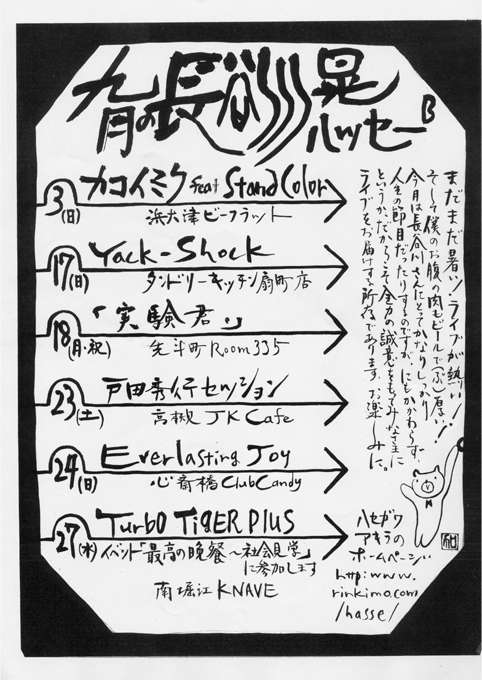 九月の長谷川晃
ハッセー
B
3(日)
カコイミク feat Stand Color
浜大津ビーフラット
17(日)
Yack-Shock
タンドリーキッチン扇町店
18(月・祝)
「実験君。」
先斗町Room335
23(土)
戸田秀行セッション
高槻 JK Cafe
24(日)
Everlasting Joy
心斎橋ClubCandy
27(水)
Turbo TiGER PlUS
イベント「最高の晩餐〜社会見学」
に参加します
南堀江KNAVE
まだまだ暑い!ライブが熱い!
そして僕のお腹の肉もビールで(ぶ)厚い!
今月は長谷川さんにとってかなりしっかり
人生の節目だったりするのですが、にもかかわらず、
というか、だからこそ全力の誠意をもってみなさまに
ライブをお届けする所存であります。お楽しみに。
ハセガワ
アキラの
ホームページ
http:www.
rinkimo.com
/hasse/